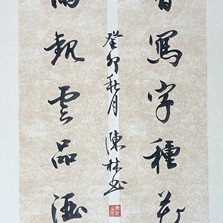 寫字種花
觀雲品酒
癸卯秋月 陳林書